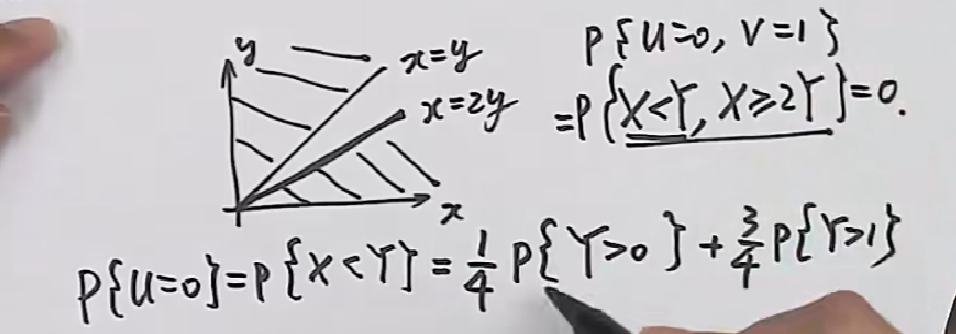 y
x=y
x=2y
x
P{U=0, V=1}
=P{X<Y, X≥2Y}=0.
P{U=0}=P{X<Y}=\frac{1}{4}P{Y>0}+\frac{3}{4}P{Y>1}